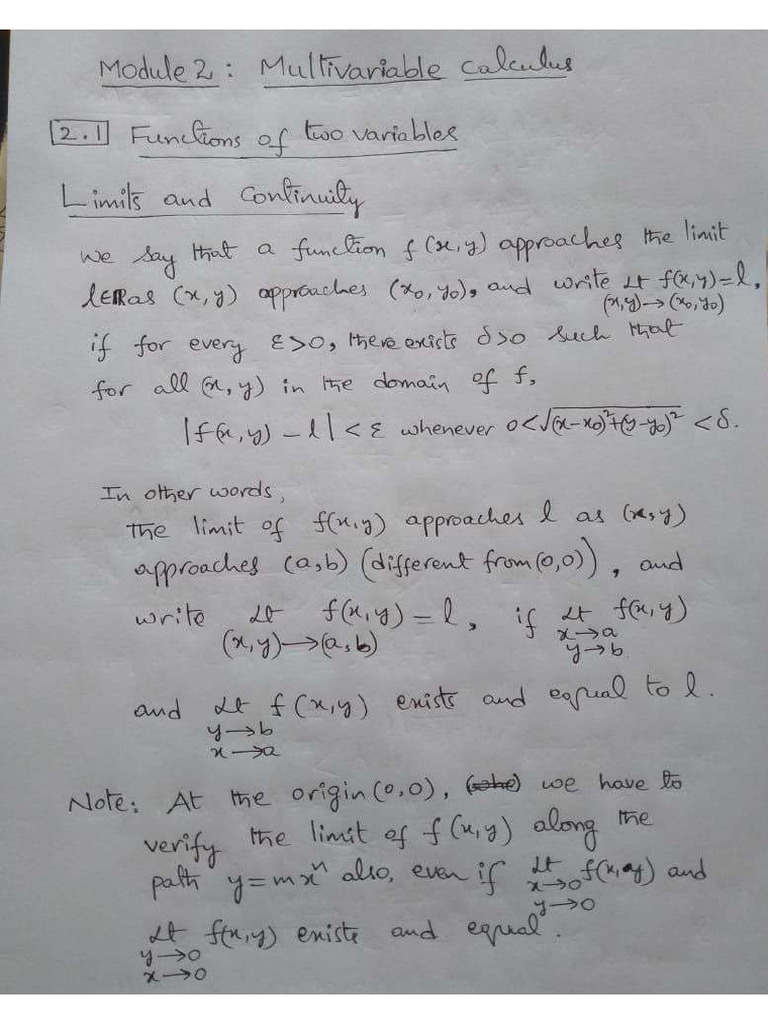 Module 2 : Multivariable calculus
2.1 Functions of two variables
Limits and continuity
We say that a function f(x,y) approaches the limit
l∈ℝ as (x,y) approaches (x₀,y₀), and write Lt f(x,y)=l,
(x,y)→(x₀,y₀)
if for every ε>0, there exists δ>0 such that
for all (x,y) in the domain of f,
|f(x,y) – l| < ε whenever 0<√(x-x₀)²+(y-y₀)² < δ.
In other words,
The limit of f(x,y) approaches l as (x,y)
approaches (a,b) (different from (0,0)), and
write Lt f(x,y) = l, if Lt f(x,y)
(x,y)→(a,b) x→a
y→b
and Lt f(x,y) exists and equal to l.
y→b
x→a
Note: At the origin (0,0), we have to
verify the limit of f(x,y) along the
path y=mxⁿ also, even if Lt f(x,y) and
x→0
y→0
Lt f(x,y) exists and equal.
y→0
x→0